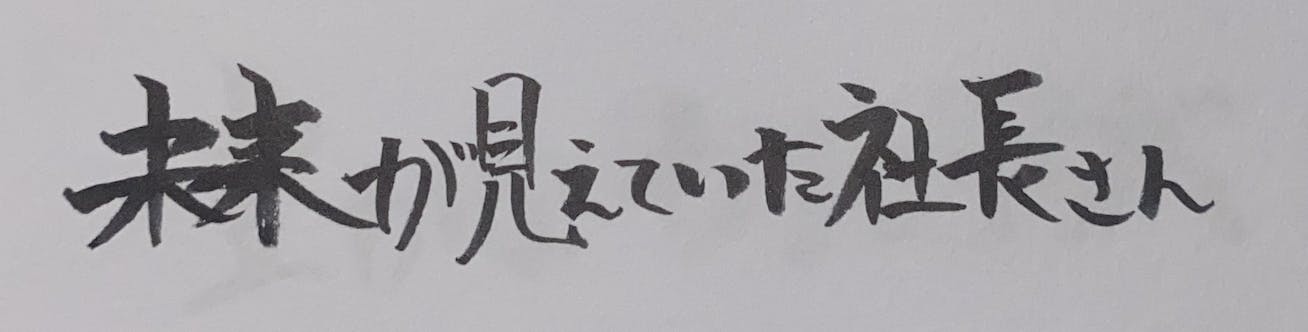 未来が見えていた社長さん